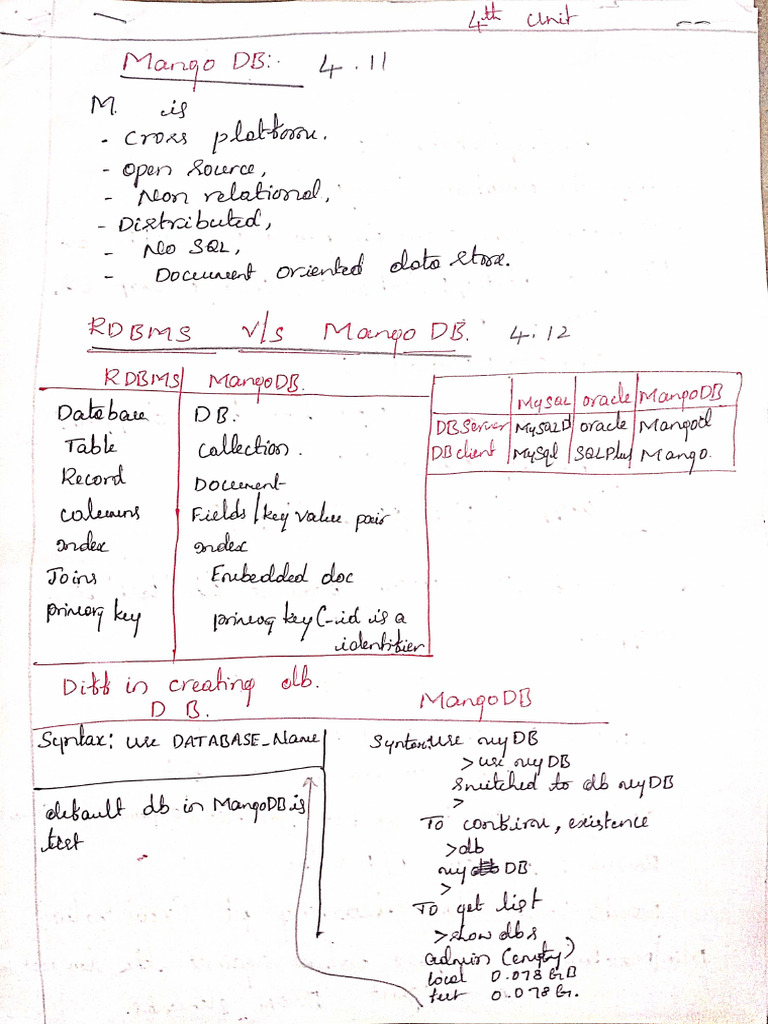 4th Unit
Mango DB:. 4.11
M. is
- Cross platform.
- Open Source,
- Non relational,
- Distributed,
- No SQL,
- Document oriented data store.
RDBMS v/s Mango DB. 4.12
RDBMS MangoDB.
Database DB.
Table Collection.
Record Document
Columns Fields / key value pair
Index Index
Joins Embedded doc
primary key primary key (_id is a
identifier
MySQL oracle MangoDB
DBServer MySQLD oracle Mangod
DBclient MySql SQLPlus Mango.
Diff in creating db.
D B. MangoDB
Syntax: use DATABASE_Name
default db in MangoDB is
test
Syntax: Use myDB
> use myDB
Switched to db myDB
>
To confirm, existence
>db
myDB
>
To get list
>show dbs
admin (empty)
local 0.078 GB
test 0.078 G.